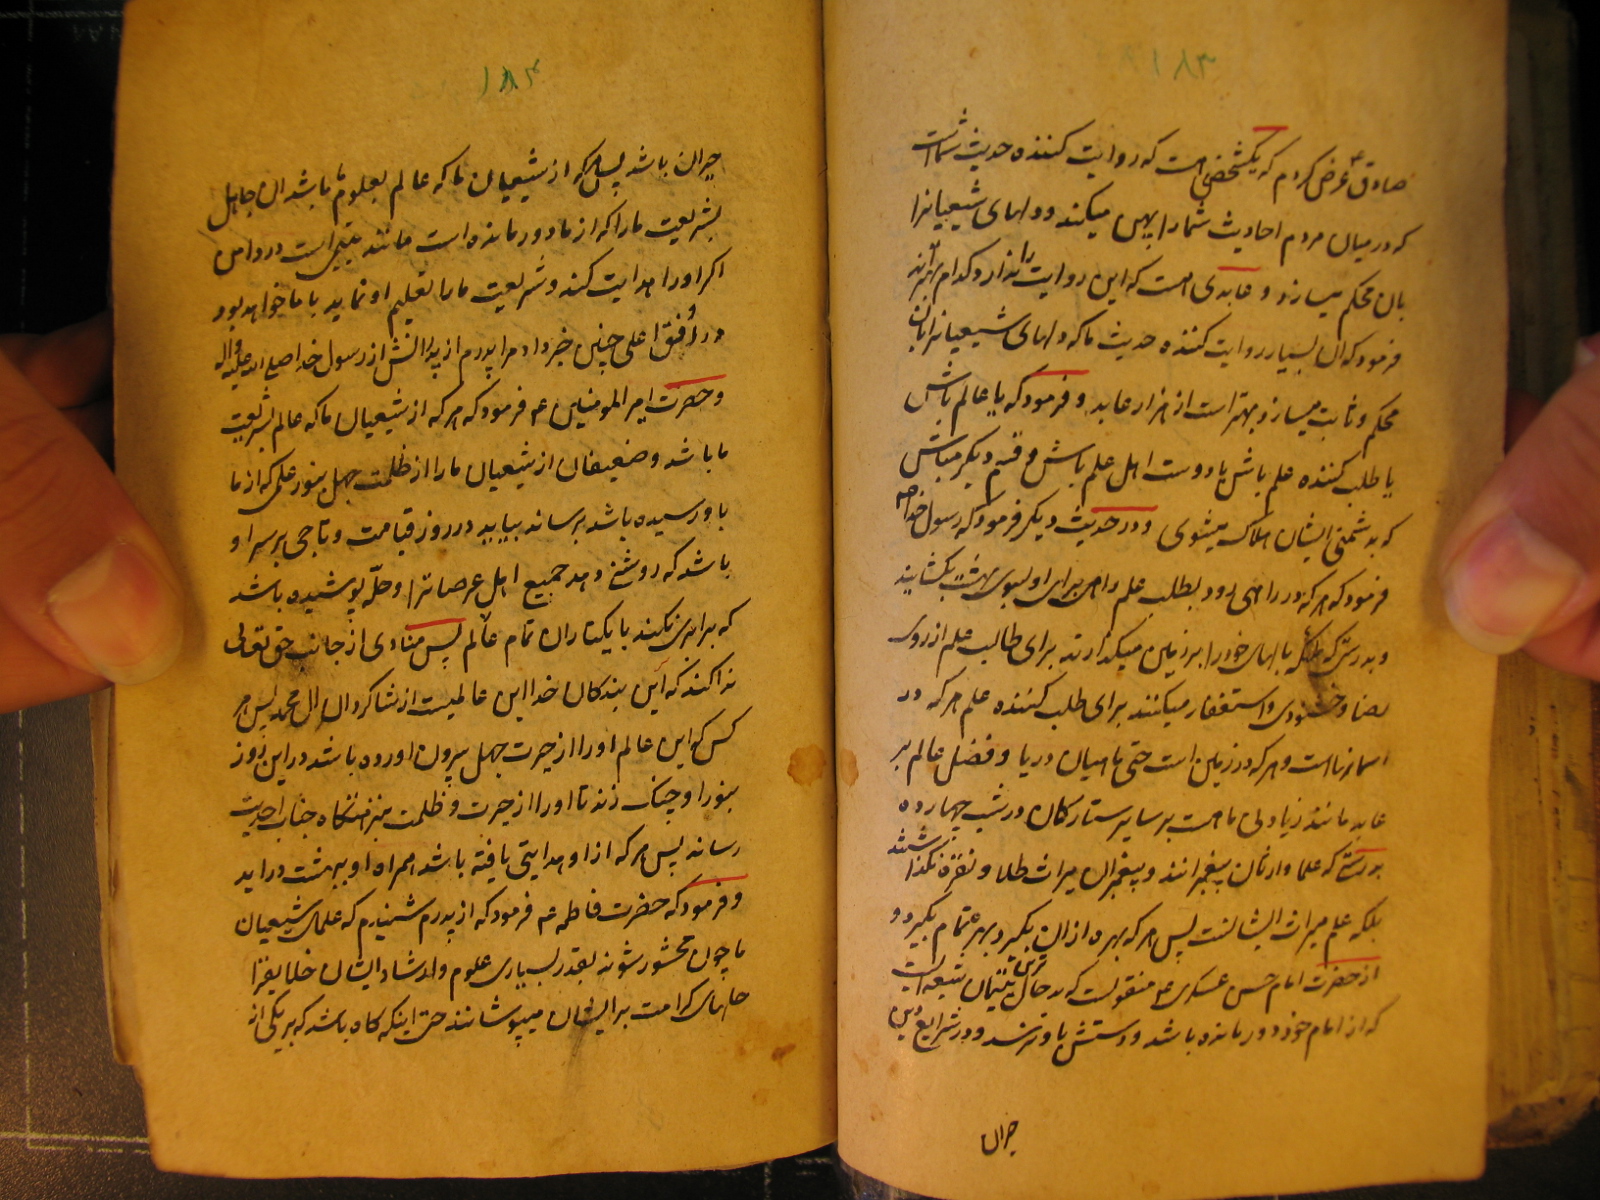 ۱۸۳
صادق ع عرض کردم که یکشخصی هست که روایت کننده حدیث شماست
که در میان مردم احادیث شما را پهن میکند و دلهای شیعیانرا
بان محکم میسازد و عابدی هست که این روایت را ندارد کدام بهترند
فرمود که ان بسیار روایت کننده حدیث ما که دلهای شیعیانرا بان
محکم و ثابت میسازد بهتر است از هزار عابد و فرمود که یا عالم باش
یا طلب کننده علم باش یا دوست اهل علم باش و قسم دیگر مباش
که بدشمنی ایشان هلاک میشوی و در حدیث دیگر فرمود که رسول خدا ص
فرمود که هر که در راهی رود بطلب علم راهی برای او بسوی بهشت بگشایند
و بدرستی که ملائکه بالهای خود را بر زمین میگذارند برای طالب علم از روی
رضا و خشنودی و استغفار میکنند برای طلب کننده علم هر که در
اسمانهاست و هر که در زمین است حتی ماهیان دریا و فضل عالم بر
عابد مانند زیادتی ماهست بر سایر ستارکان در شب چهارده
بدرستی که علما وارثان پیغمبرانند و پیغمبران میراث طلا و نقره نگذاشتند
بلکه علم میراث ایشانست پس هر که بهره از ان بگیرد بهره تمام بگیرد و
از حضرت امام حسن عسکری ع منقولست که بدحال ترین یتیمان یتیمی است
که از امام خود دور مانده باشد و دستش باو نرسد و در شرایع دین
حیران
۱۸۴
حیران باشد پس هر که از شیعیان ما که عالم بعلوم ما باشد ان جاهل
بشریعت ما را که از ما دور مانده است مانند یتیمی است در دامن
اکر او را هدایت کند و شریعت ما را تعلیم او نماید با ما خواهد بود
در رفیق اعلی چنین خبر داد مرا پدرم از پدرانش از رسول خدا صلی الله علیه و اله
و حضرت امیر المومنین ع فرمود که هر که از شیعیان ما که عالم بشریعت
ما باشد و ضعیفان از شیعیان ما را از ظلمت جهل بنور علمی که از ما
باو رسیده باشد برساند بیاید در روز قیامت و تاجی بر سر او
باشد که روشنی دهد جمیع اهل عرصاترا و حله پوشیده باشد
که برابری نکند با یکتار ان تمام عالم پس منادی از جانب حق تعالی
ندا کند که ای بندکان خدا این عالمیست از شاکردان ال محمد پس هر
کس که این عالم او را از حیرت جهل بیرون اورده باشد در این روز
بنور او چنک زند تا او را از حیرت و ظلمت بنزهتگاه جناب احدیت
رساند پس هر که از او هدایتی یافته باشد همراه او ببهشت دراید
و فرمود که حضرت فاطمه ع فرمود که از پدرم شنیدم که علمای شیعیان
ما چون محشور شوند بقدر بسیاری علوم و ارشاد ایشان خلایقرا
حلهای کرامت بر ایشان میپوشانند حتی اینکه کاه باشد که بر یکی از